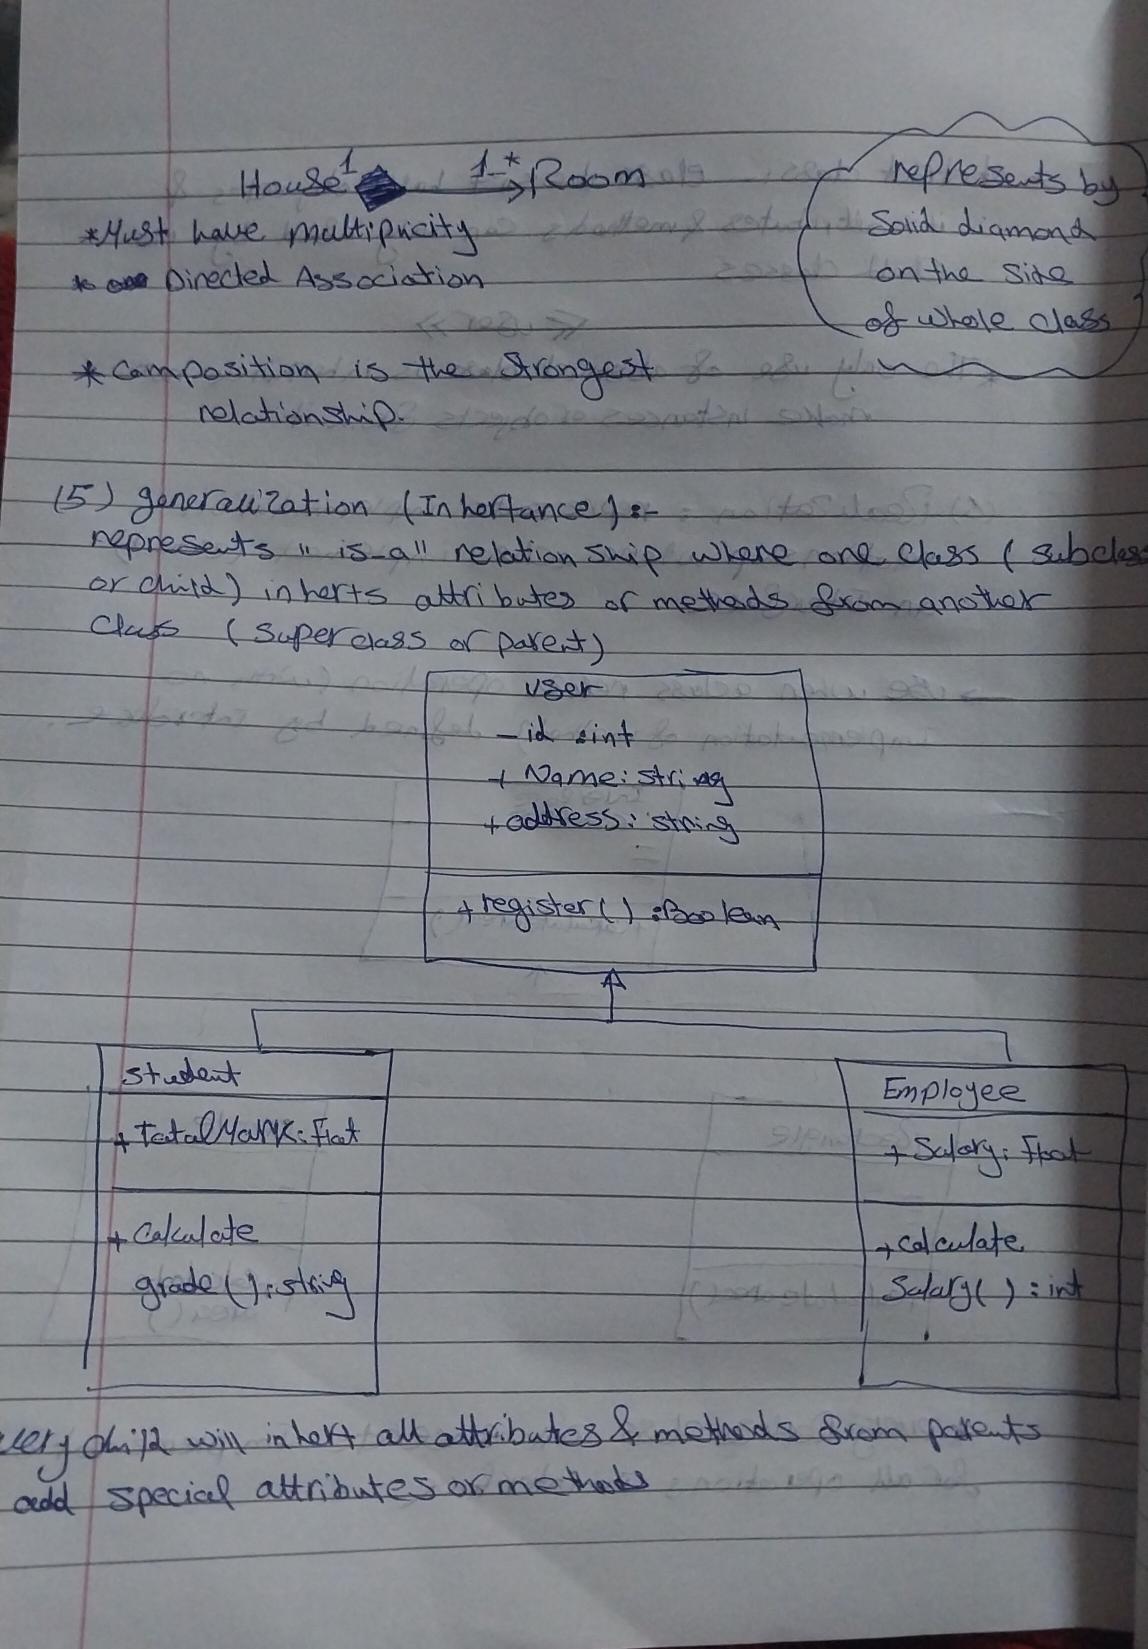 House 1 1-* Room
represents by
Solid diamond
on the side
of whole class
*Must have multipricity
* Directed Association
* Composition is the strongest
relationship.
(5) generalization (Inhertance) :-
represents " is-a" relation ship where one class ( subclass
or child) inherts attributes or methods from another
Class ( Superclass or parent)
User
- id : int
+ Name: string
+ address: string
+ register( ) : Boolean
Student
+ TotalMark: Float
+ Calculate
grade( ): string
Employee
+ Salary: Float
+ calculate
Salary( ) : int
very child will inhert all attributes & methods from parents
add special attributes or methods